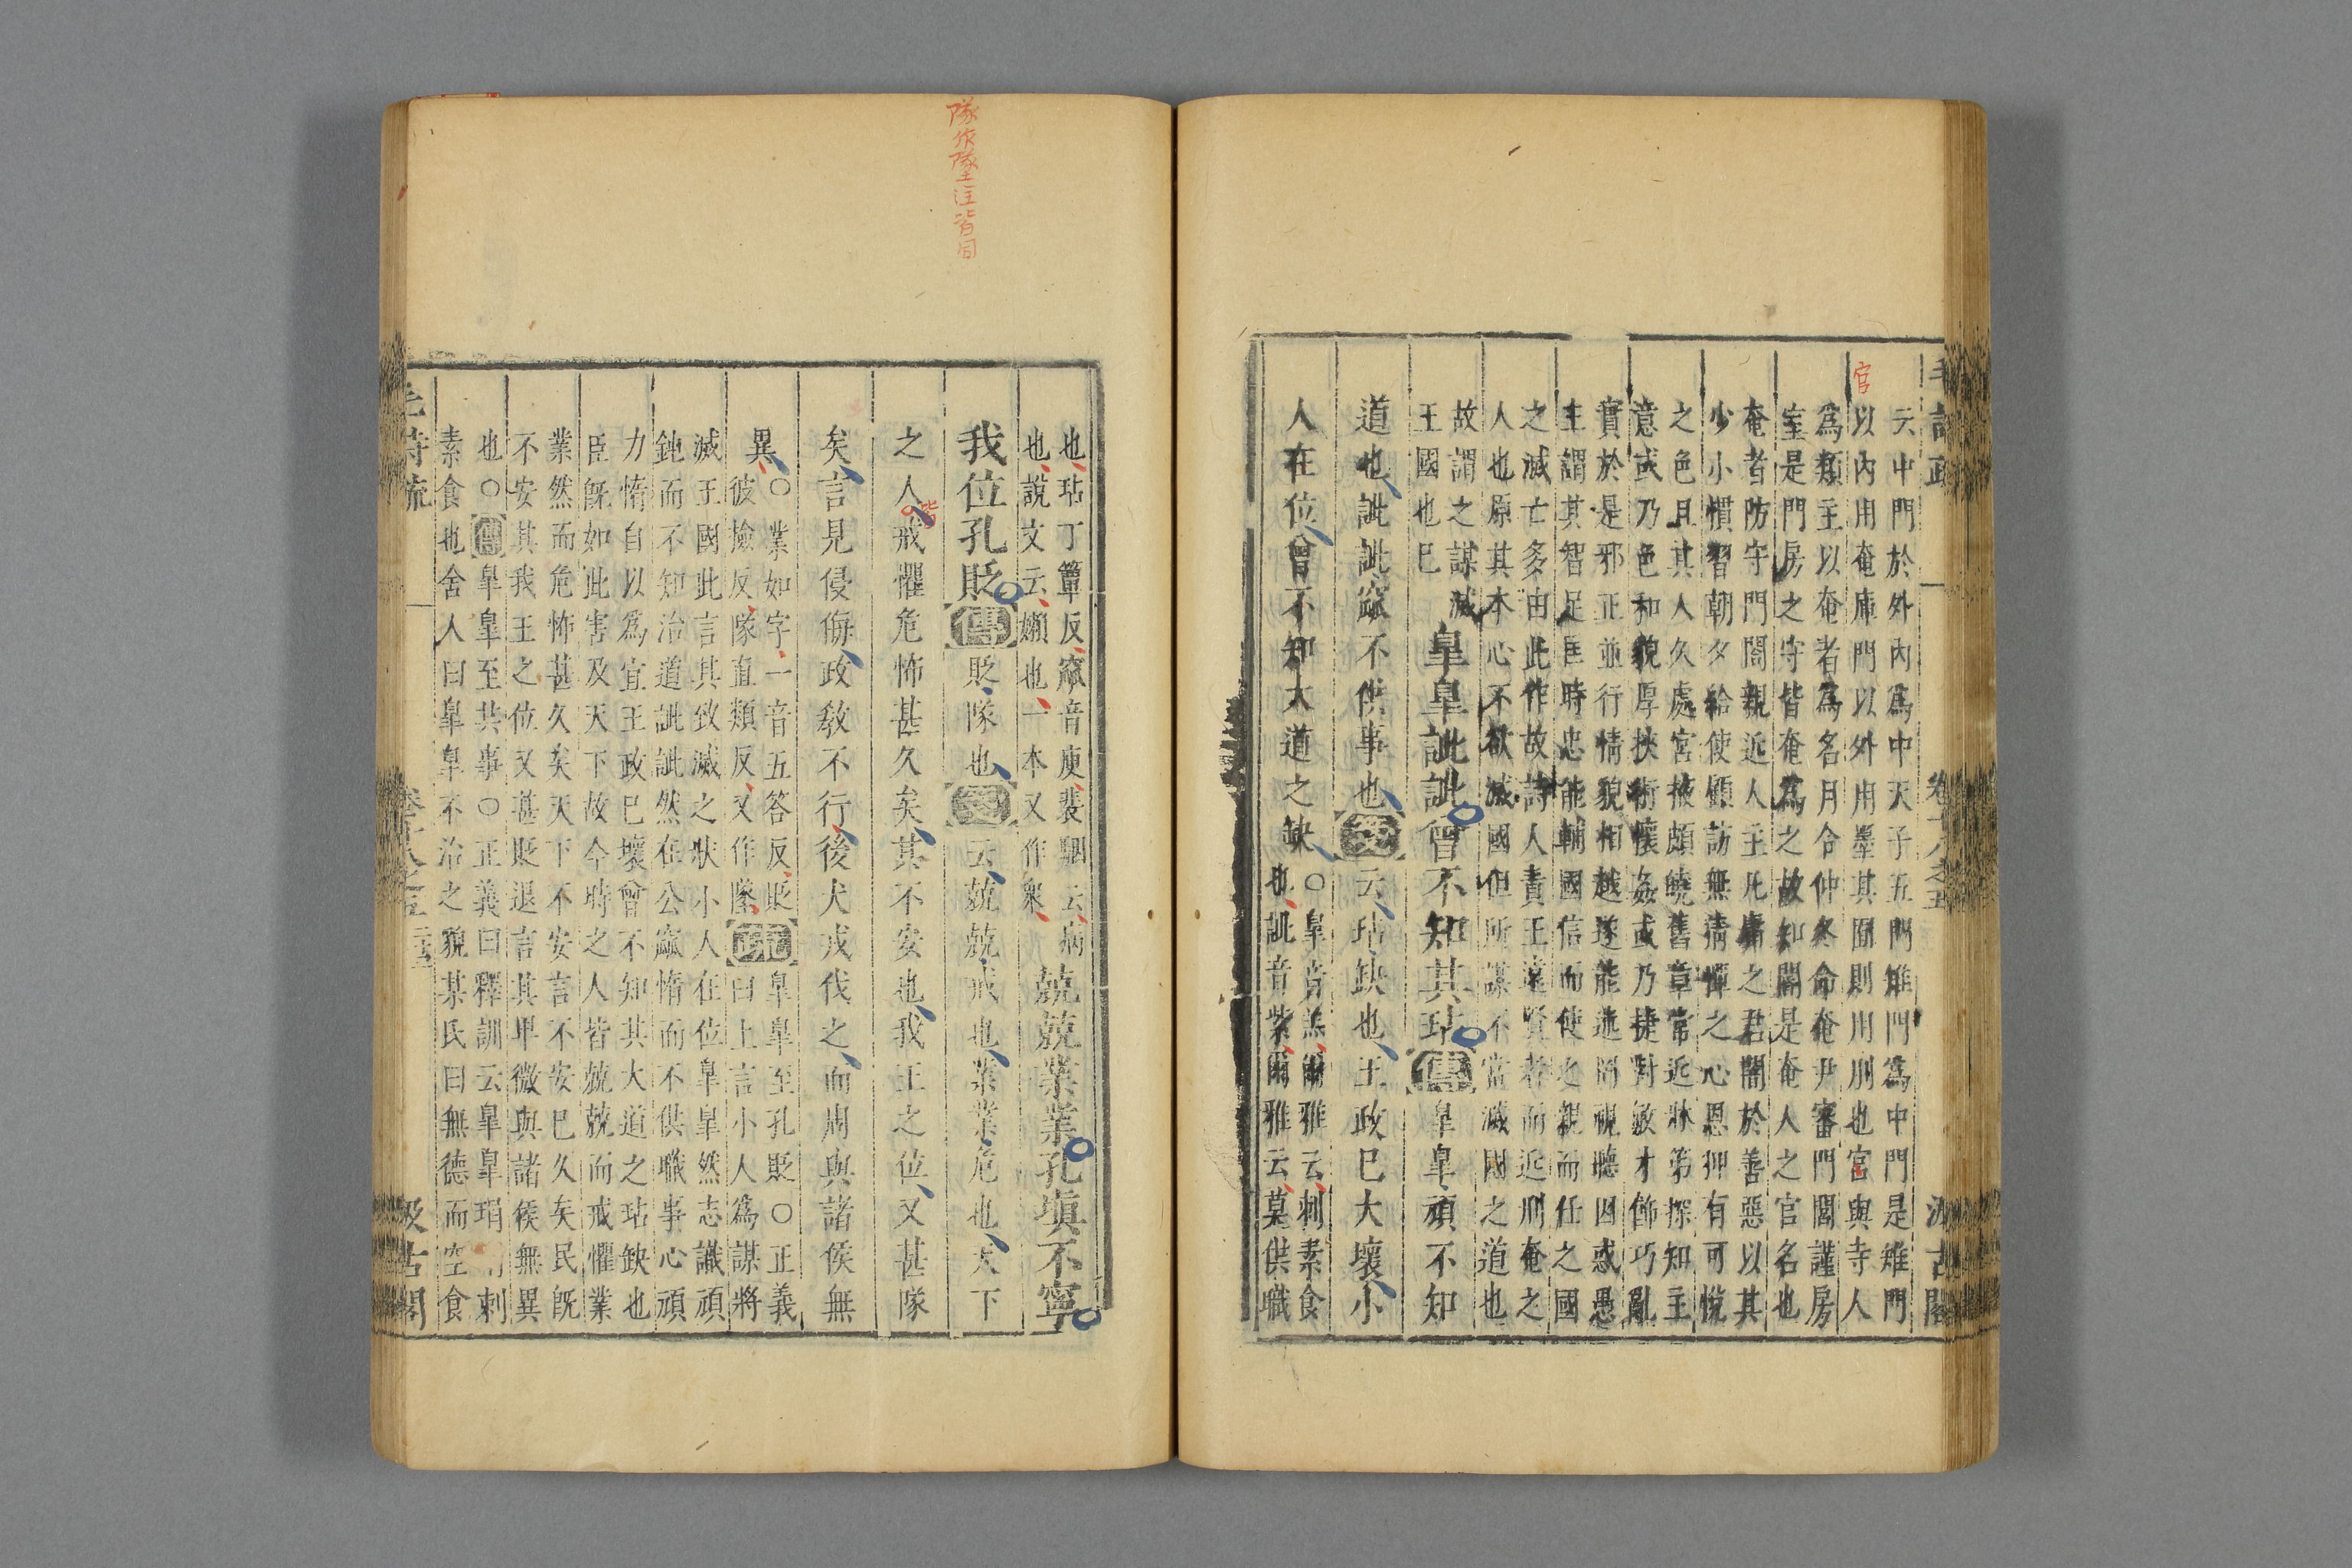 毛詩疏
卷十八之五
汲古閣
官
云中門於外內爲中天子五門雉門爲中門是雉門
以內用奄庫門以外用墨其囿則用刖也宮與寺人
爲類主以奄者爲名月令仲冬命奄尹審門閭謹房
室是門房之守皆奄爲之故知閽是奄人之官名也
奄者防守門閤親近人主凡庸之君闇於善惡以其
少小慣習朝夕給使顧訪無猜憚之心恩狎有可悅
之色且其人久處宮掖頗曉舊章常近牀第探知主
意或乃色和貌厚挾術懷姦或乃捷對敏才飾巧亂
實於是邪正並行情貌相越遂能迷罔視聽因惑愚
主謂其智足匡時忠能輔國信而使之親而任之國
之滅亡多由此作故詩人責王遠賢者而近刑奄之
人也原其本心不欲滅國但所謀不當滅國之道也
故謂之謀滅
王國也已
皐皐訿訿曾不知其玷傳皐皐頑不知
道也訿訿窳不供事也箋云玷缺也王政已大壞小
人在位曾不知大道之缺
〇皐音羔爾雅云刺素食
也訿音紫爾雅云莫供職
也玷丁簟反窳音庾裴駰云病
也說文云嬾也一本又作衆
兢兢業業孔塡不寧
我位孔貶傳貶隊也箋云兢兢戒也業業危也天下
之人戒懼危怖甚久矣其不安也我王之位又甚隊
皆
矣言見侵侮政教不行後犬戎伐之而周與諸侯無
異
〇業如字一音五答反貶
彼檢反隊直類反又作墜
疏
皐皐至孔貶〇正義
曰上言小人爲謀將
滅王國此言其致滅之狀小人在位皐皐然志識頑
鈍而不知治道訿訿然在公窳惰而不供職事心頑
力惰自以爲宜王政已壞曾不知其大道之玷缺也
臣旣如此害及天下故今時之人皆兢兢而戒懼業
業然而危怖甚久矣天下不安言不安已久矣民旣
不安其我王之位又甚貶退言其卑微與諸侯無異
也〇傳皐皐至共事〇正義曰釋訓云皐皐琄琄刺
素食也舍人曰皐皐不治之貌某氏曰無德而空食
毛詩疏
卷十八之五
汲古閣
隊作墜注皆同